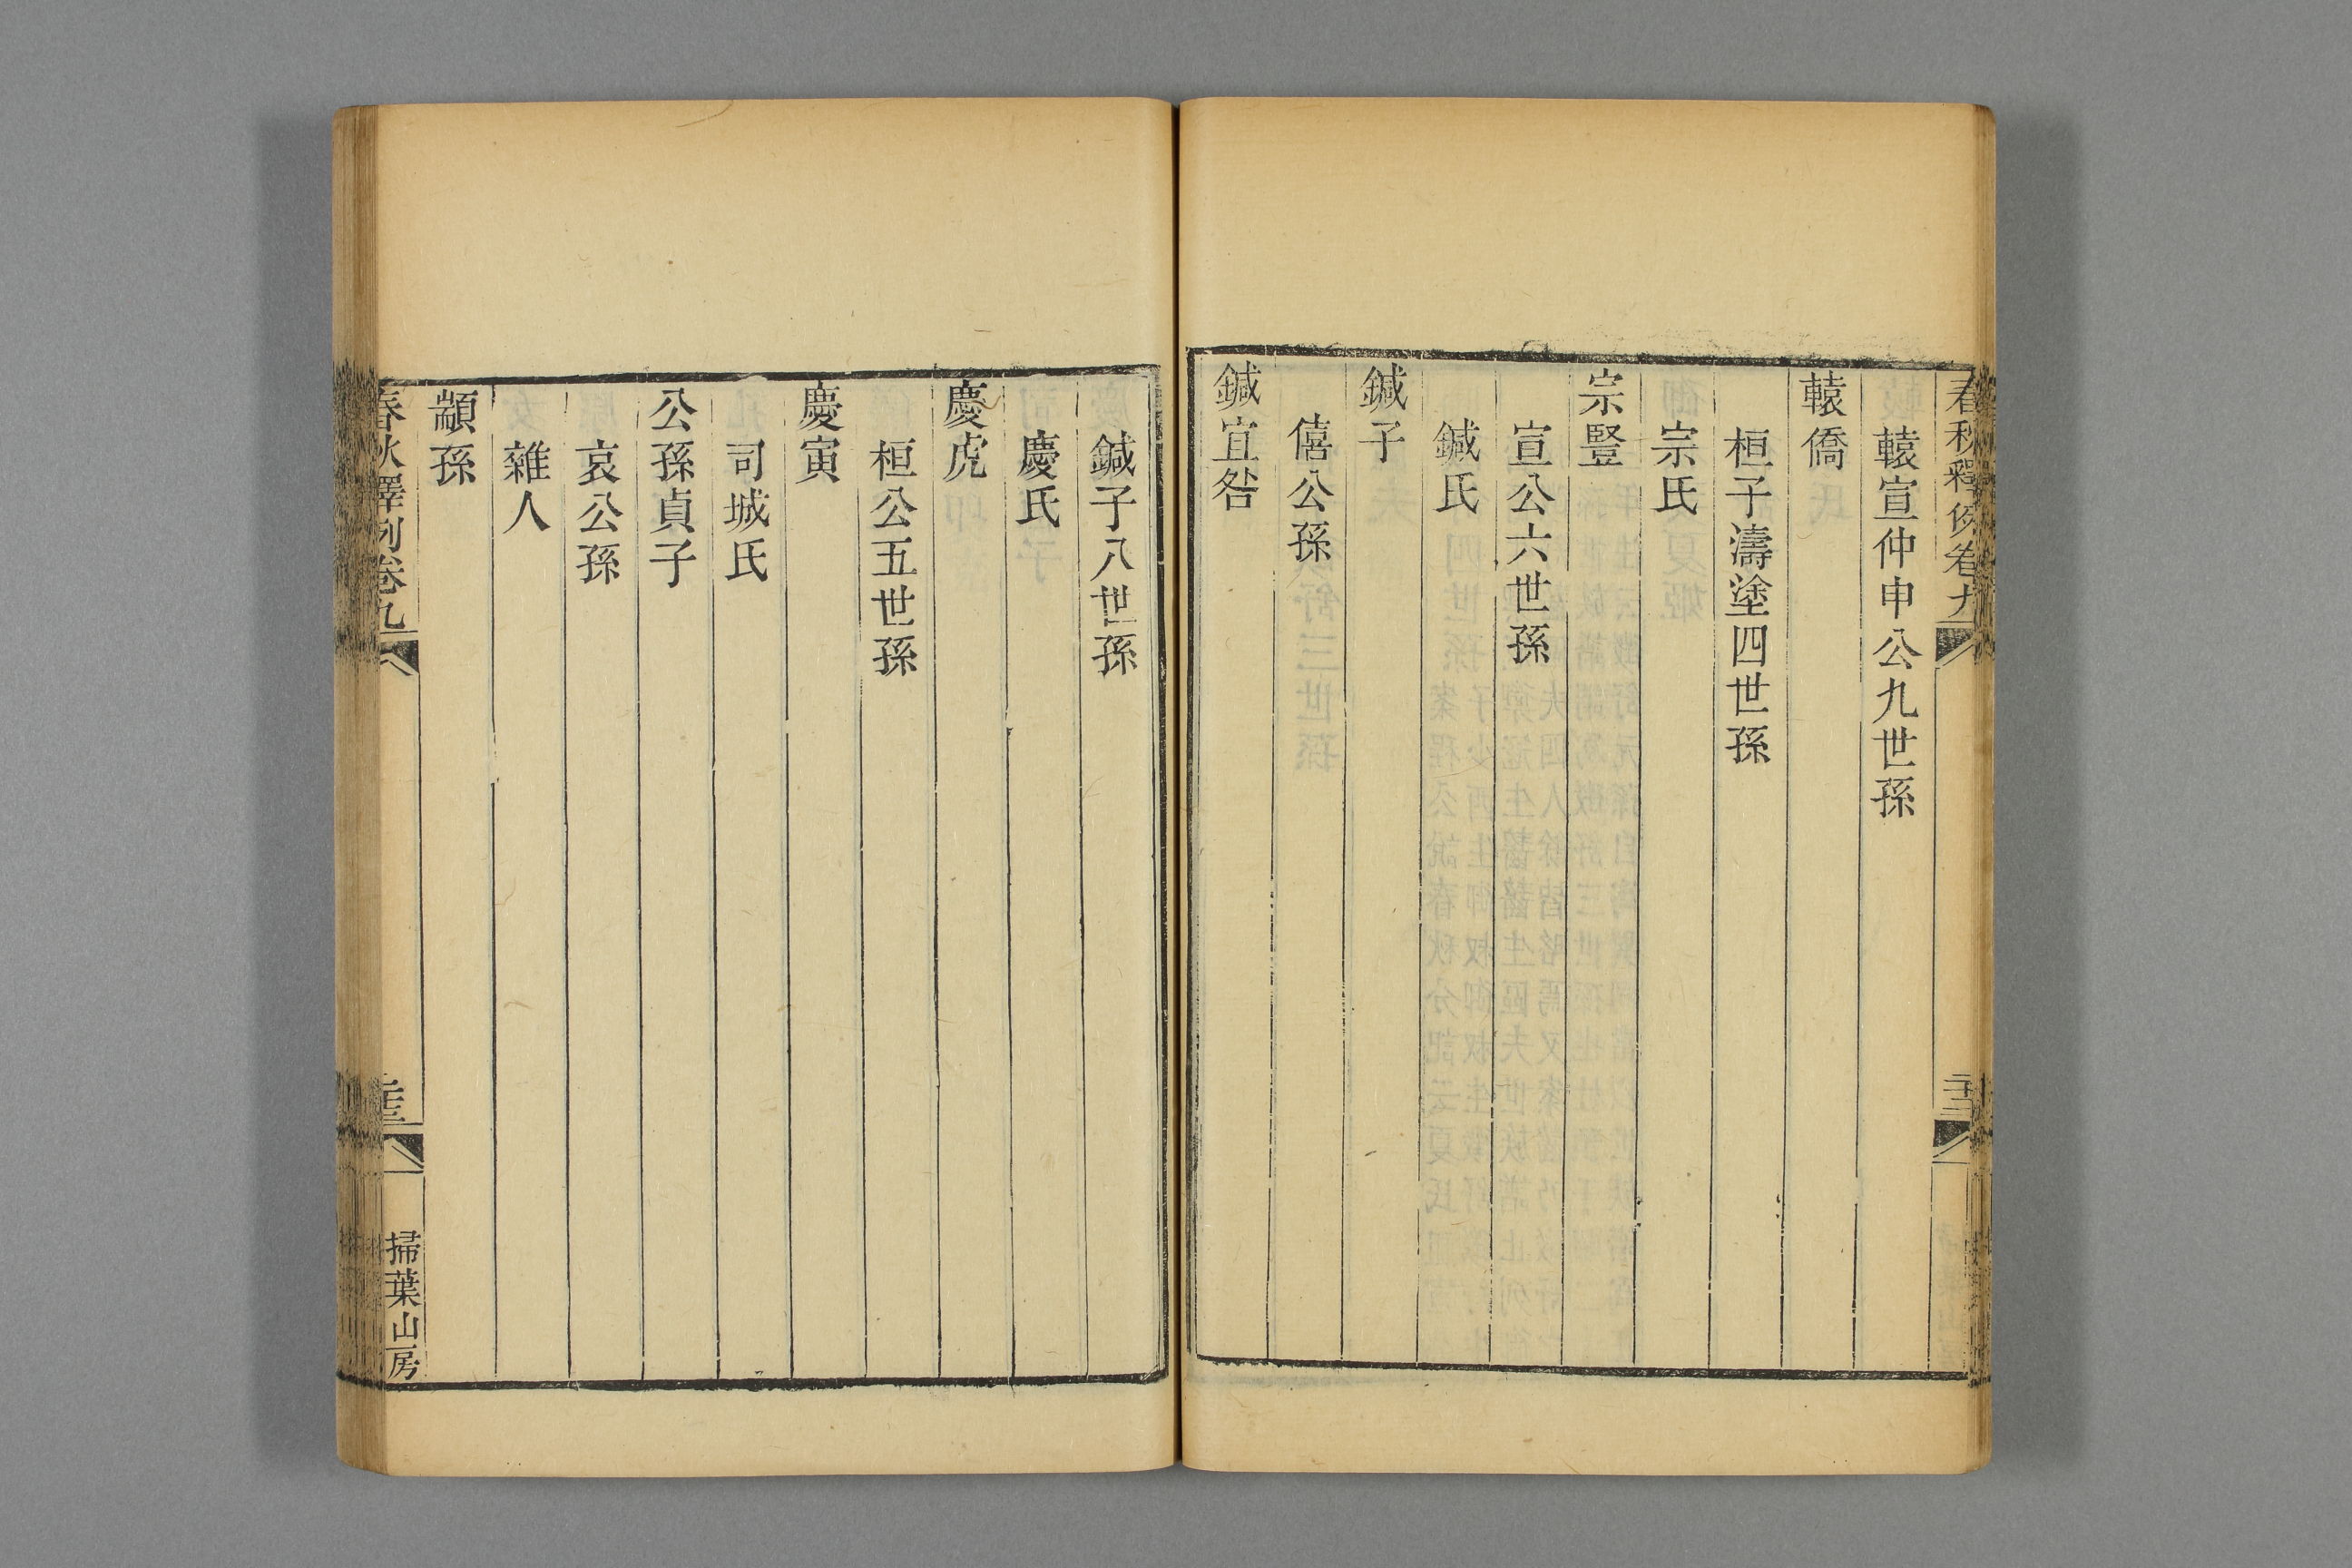 春秋釋例卷九
轅宣仲申公九世孫
轅僑
桓子濤塗四世孫
宗氏
宗豎
宣公六世孫
鍼氏
鍼子
僖公孫
鍼宜咎
鍼子八世孫
慶氏
慶虎
桓公五世孫
慶寅
司城氏
公孫貞子
哀公孫
雜人
顓孫
春秋釋例卷九
掃葉山房